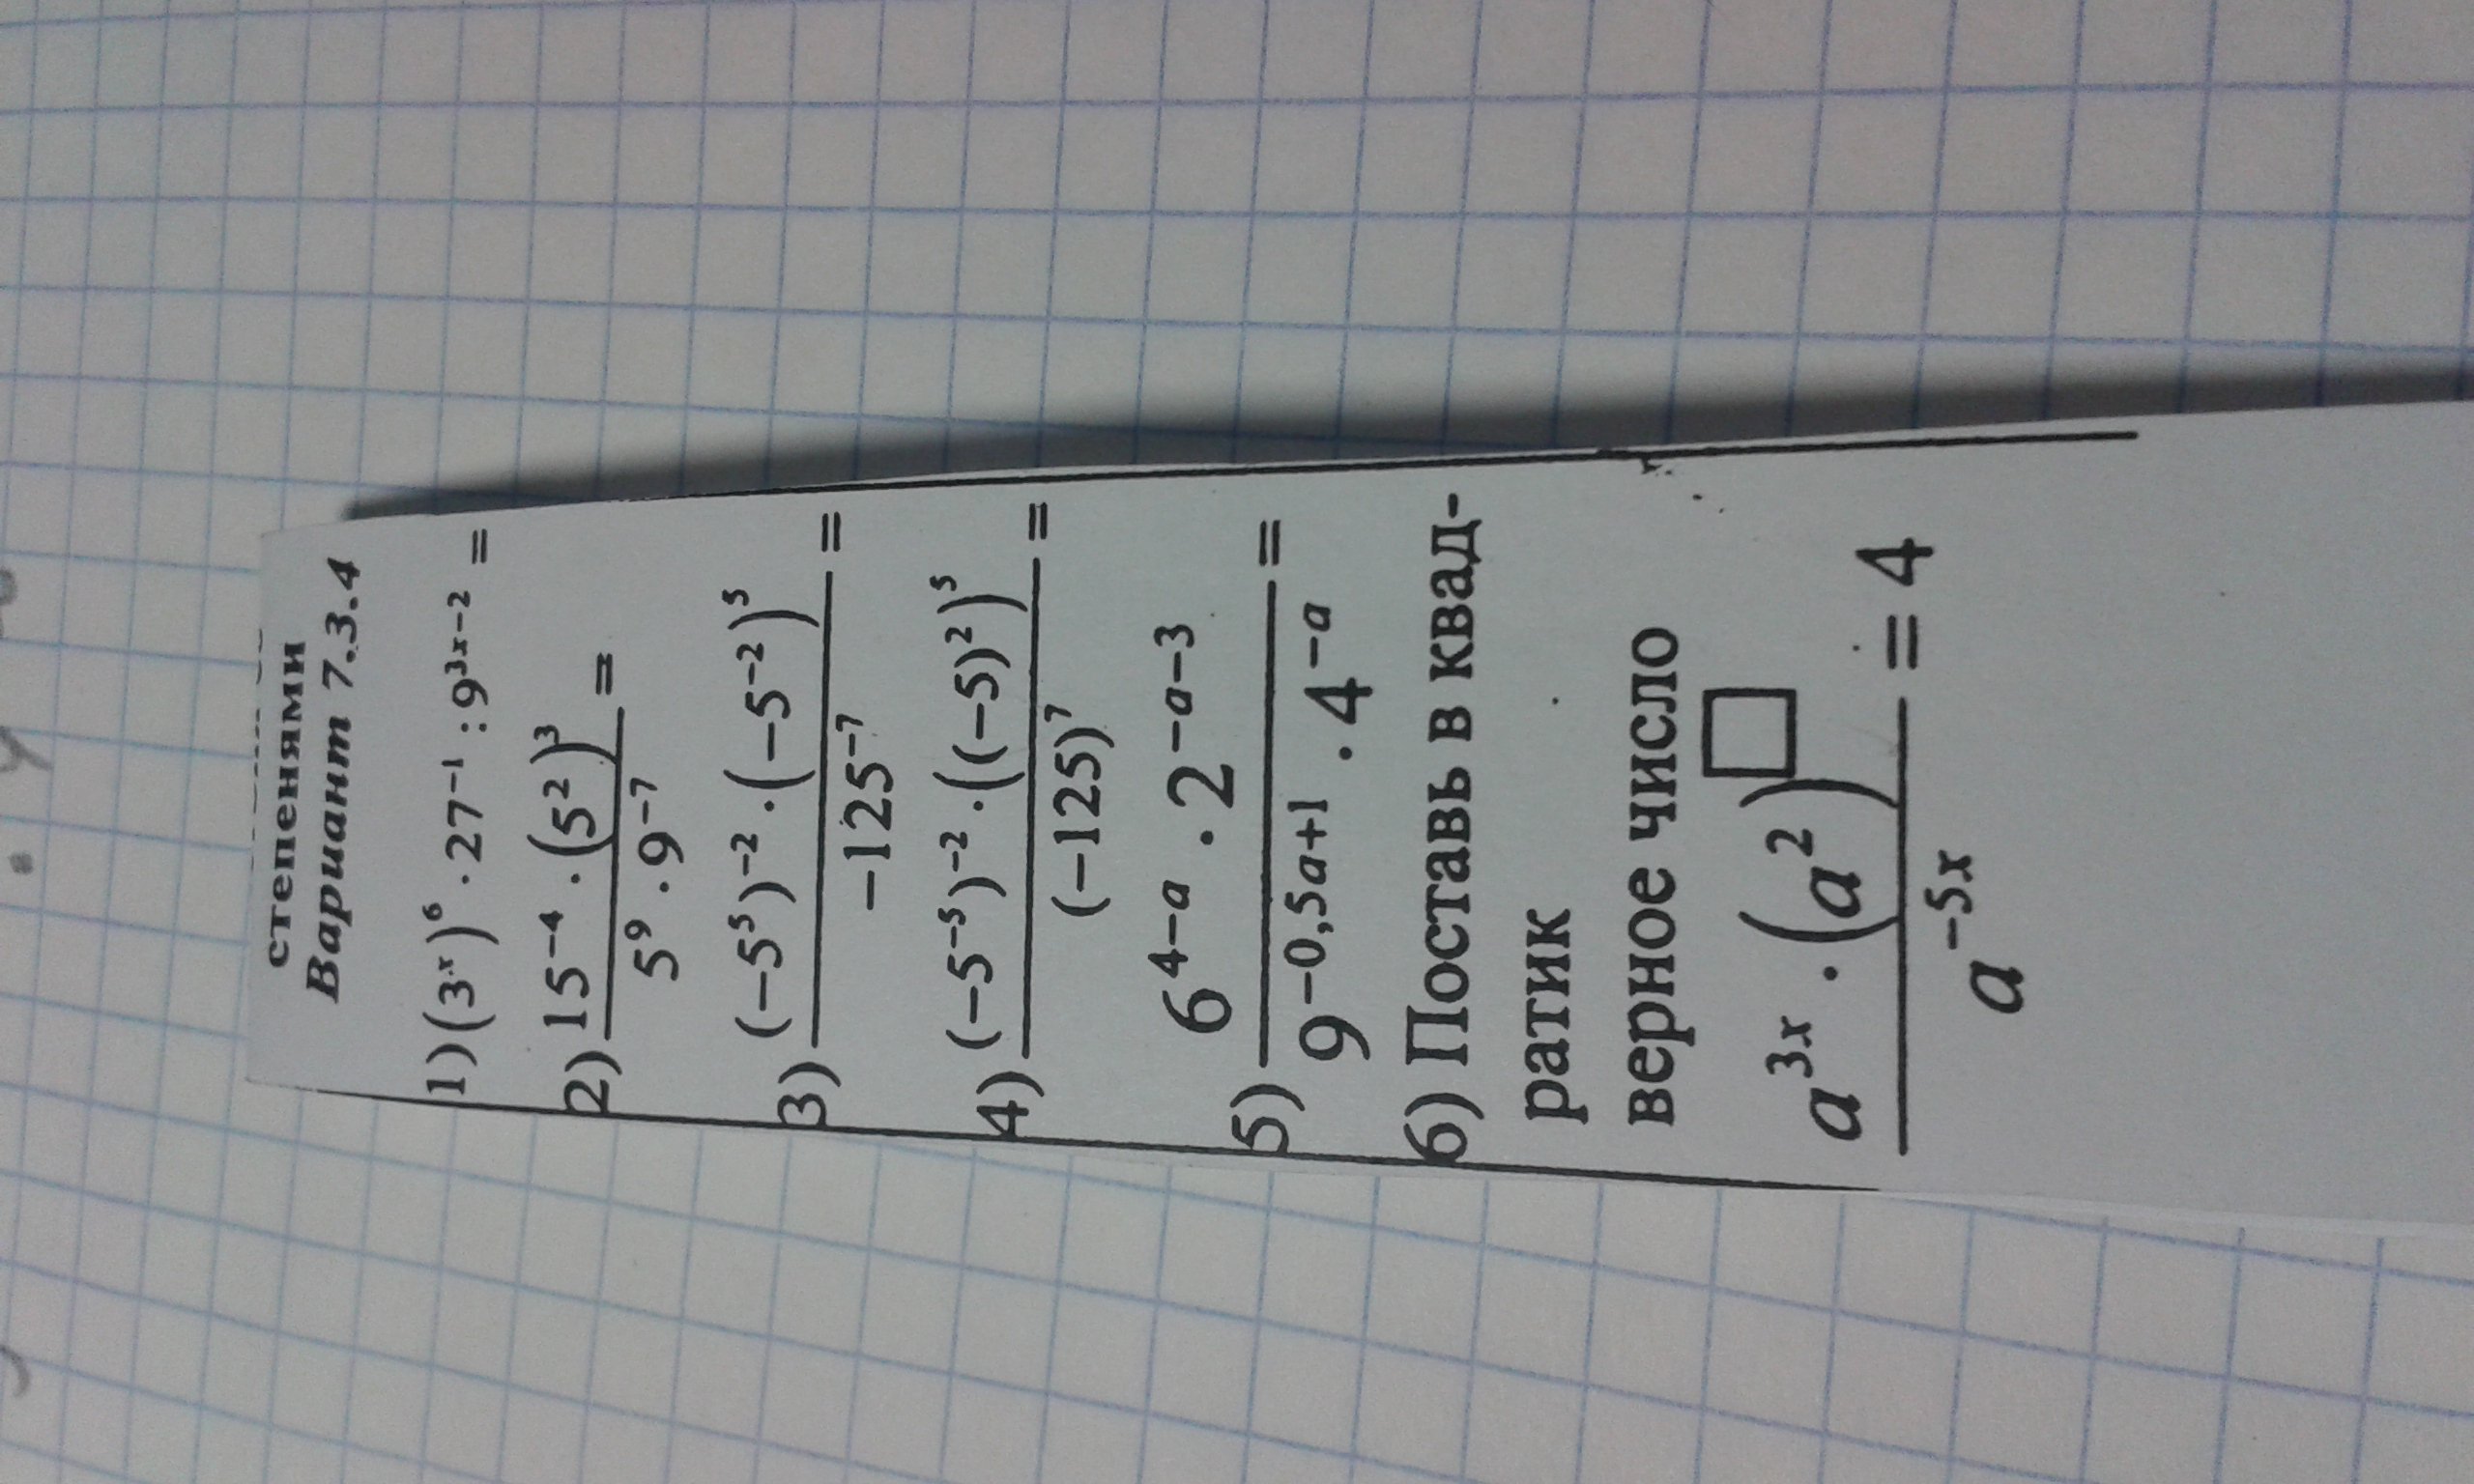 степенями
Вариант 7.3.4
1) (3ˣ)⁶ · 27⁻¹ : 9³ˣ⁻² =
2) (15⁻⁴ · (5²)³) / (5⁹ · 9⁻⁷) =
3) ((−5⁵)⁻² · (−5⁻²)⁵) / (−125⁻⁷) =
4) ((−5⁻⁵)⁻² · ((−5)²)⁵) / ((−125)⁷) =
5) (6^(4−a) · 2^(−a−3)) / (9^(−0,5a+1) · 4^(−a)) =
6) Поставь в квад-
ратик
верное число
(a³ˣ · (a²)^□) / (a⁻⁵ˣ) = 4